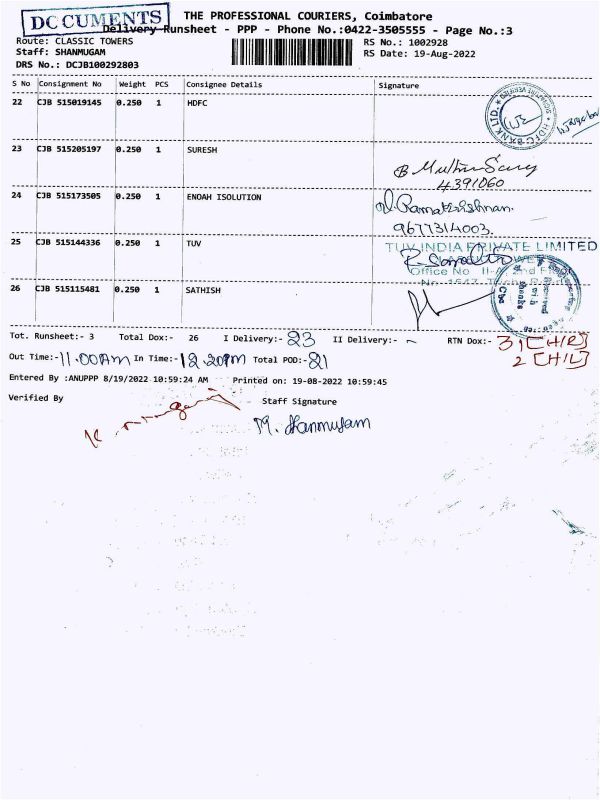 DOCUMENTS
THE PROFESSIONAL COURIERS, Coimbatore
Delivery Runsheet - PPP - Phone No.:0422-3505555 - Page No.:3
Route: CLASSIC TOWERS
RS No.: 1002928
Staff: SHANMUGAM
RS Date: 19-Aug-2022
DRS No.: DCJB100292803
S No Consignment No Weight PCS Consignee Details Signature
22 CJB 515019145 0.250 1 HDFC
HDFC BANK LTD.
SIGNATURE VERIFIED
23 CJB 515205197 0.250 1 SURESH
4391060
24 CJB 515173505 0.250 1 ENOAH ISOLUTION
Ramakrishnan.
9677314003.
25 CJB 515144336 0.250 1 TUV
TUV INDIA PRIVATE LIMITED
Office No
26 CJB 515115481 0.250 1 SATHISH
Tot. Runsheet:- 3 Total Dox:- 26 I Delivery:- 23 II Delivery:- - RTN Dox:- 3, 1 [H/R]
2 [H/L]
Out Time:- 11.00Am In Time:- 12.20Pm Total POD:- 21
Entered By :ANUPPP 8/19/2022 10:59:24 AM Printed on: 19-08-2022 10:59:45
Verified By Staff Signature
M. Shanmugam